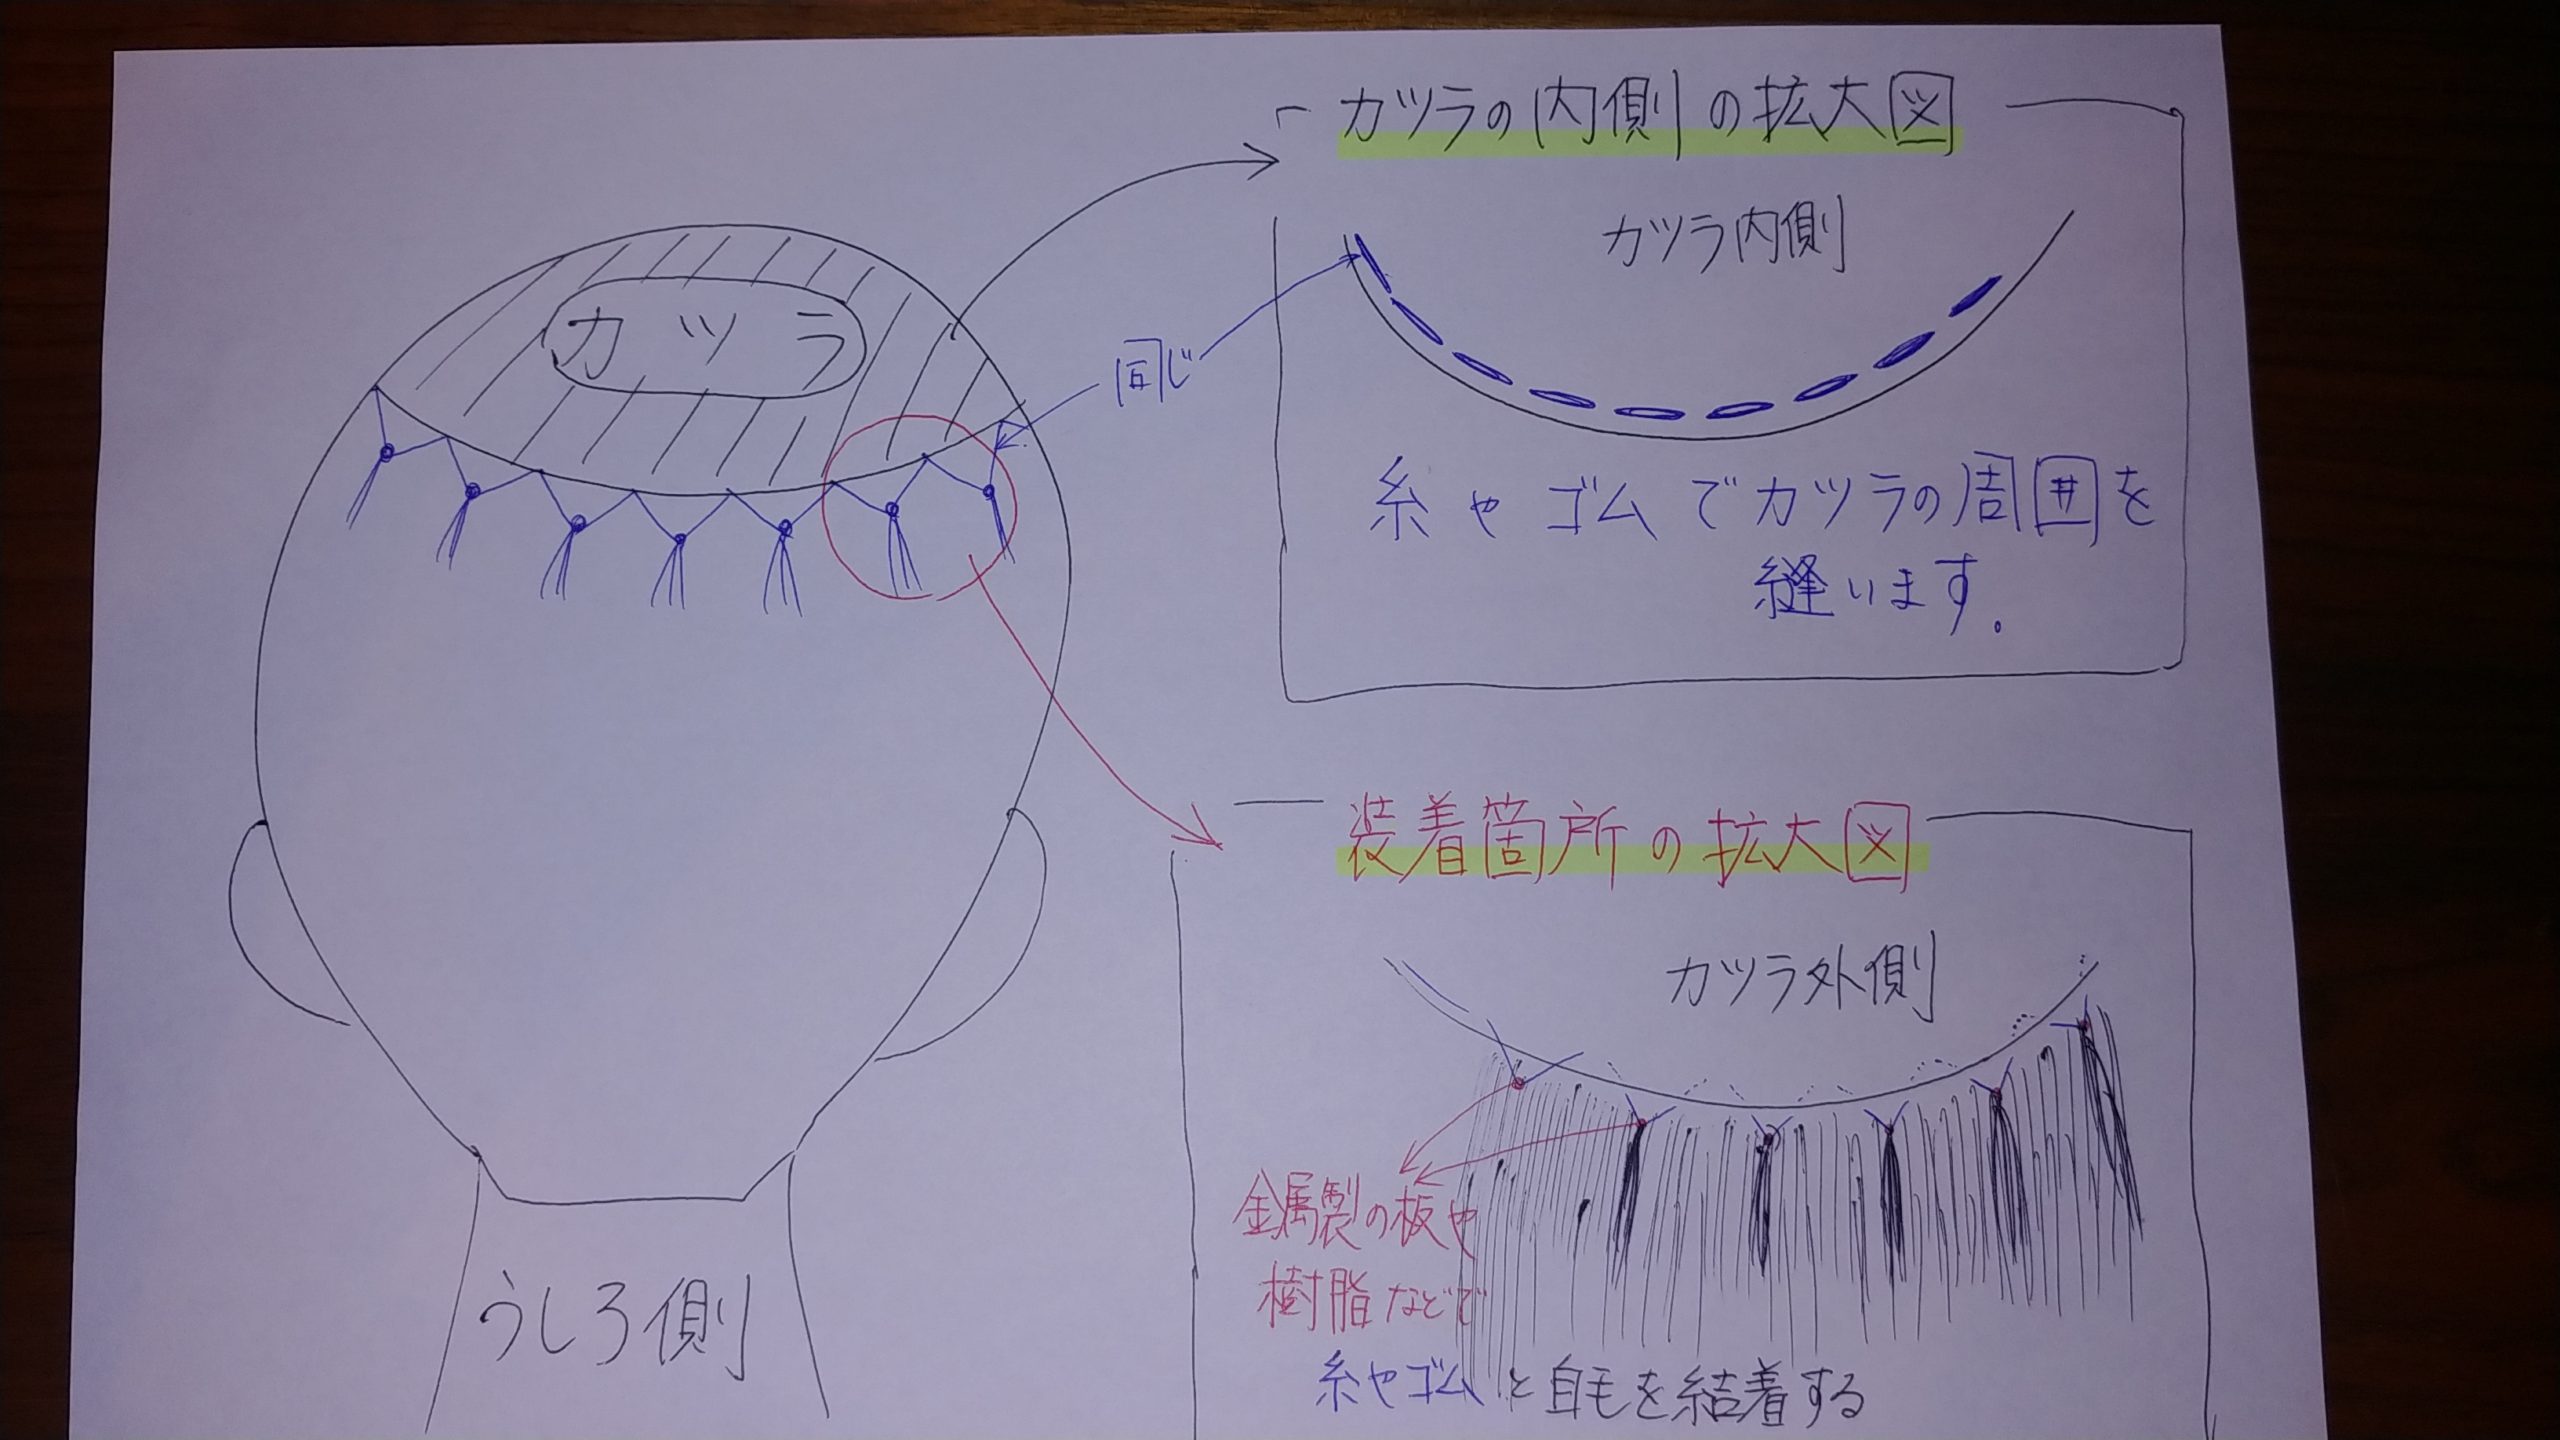 カツラ
うしろ側
同じ
カツラの内側の拡大図
カツラ内側
糸やゴムでカツラの周囲を
縫います。
装着箇所の拡大図
カツラ外側
金属製の板や
樹脂などで
糸やゴムと自毛を結着する